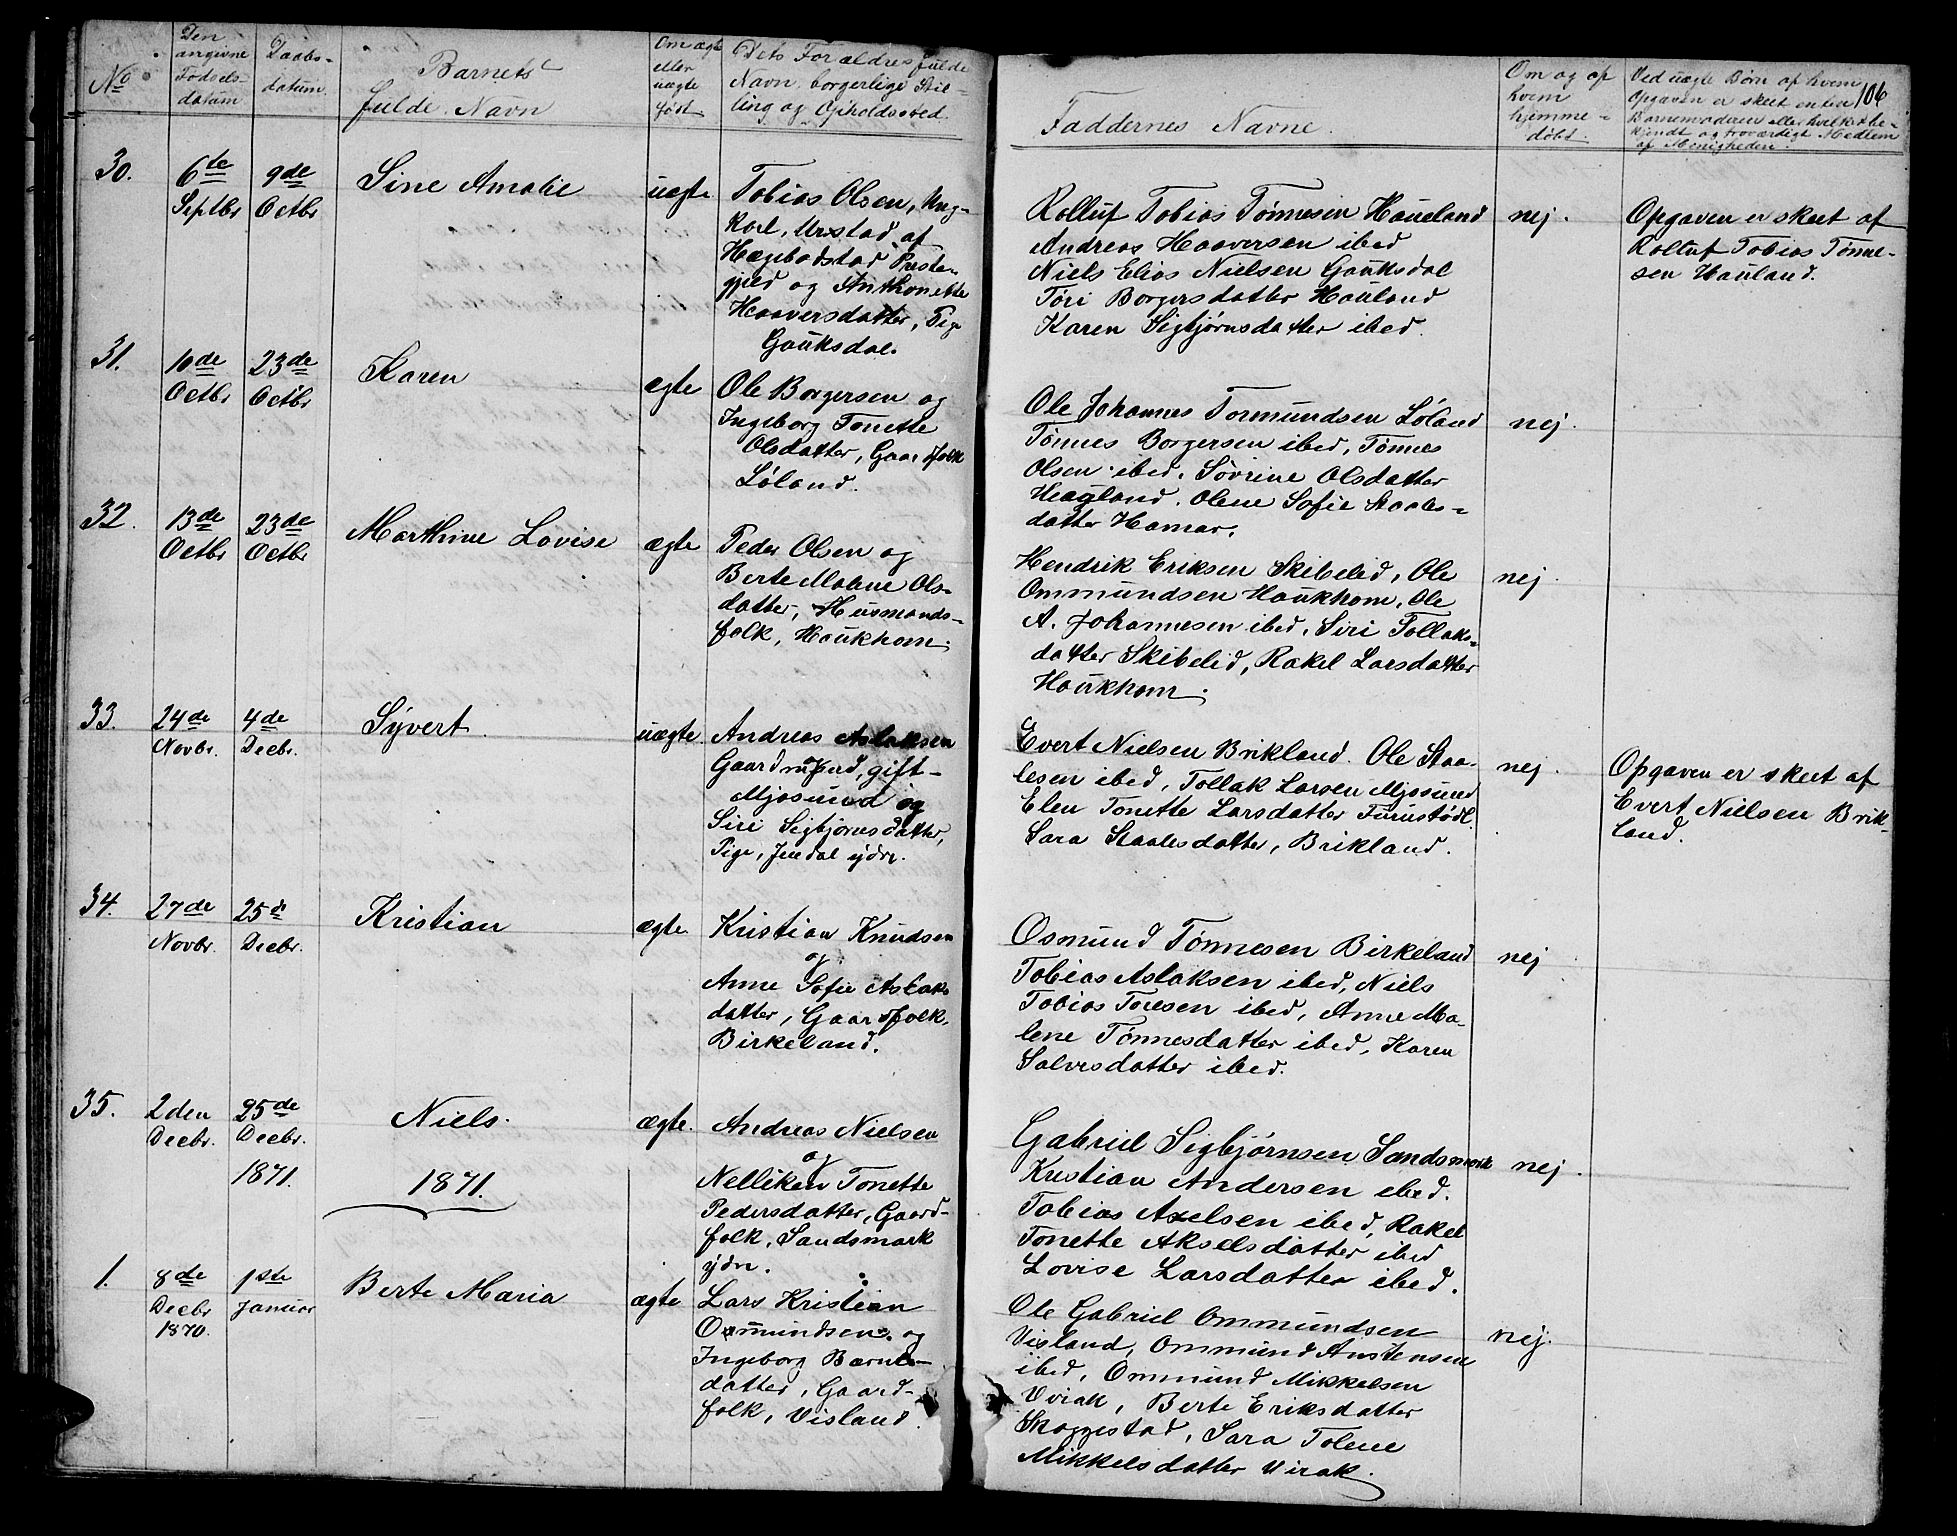 No
Den
angivne
Fødsels-
datum
Daabs-
datum.
Barnets
fulde Navn
Om ægte
eller
uægte
født
Dets Forældres fulde
Navn, borgerlige Stil-
ling og Opholdssted.
Faddernes Navne.
Om og af
hvem
hjemme-
døbt
Ved uægte Børn af hvem
Opgaven er skeet enten
Barnemoderen eller hvilket be-
kjendt og troværdigt Medlem
af Menigheden.
106
30.
6te
Septbr
9de
Octbr
Sine Amalie
uægte
Tobias Olsen, Ung-
karl, Urstad af
Hægebodstad Præste-
gjeld og Anthonette
Haaversdatter, Pige
Gauksdal.
Rolluf Tobias Tønnesen Haueland
Andreas Haaversen ibed
Niels Elias Nielsen Gauksdal
Tøri Borgersdatter Hauland
Karen Sigbjørnsdatter ibed.
nej.
Opgaven er skeet af
Rolluf Tobias Tønne-
sen Hauland.
31.
10de
Octbr
23de
Octbr
Karen
ægte
Ole Borgersen og
Ingeborg Tonette
Olsdatter, Gaardfolk
Løland.
Ole Johannes Tormundsen Løland
Tønnes Borgersen ibed, Tønnes
Olsen ibed. Søvrine Olsdatter
Heagland. Olene Sofie Staales-
datter Hamar.
nej.
32.
13de
Octbr
23de
Octbr
Marthine Lovise
ægte
Peder Olsen og
Berte Malene Ols-
datter, Husmands-
folk, Haukhom.
Hendrik Eriksen Skibelid, Ole
Ommundsen Haukhom, Ole
A. Johannesen ibed, Siri Tollaks-
datter Skibelid, Rakel Larsdatter
Haukhom.
nej.
33.
24de
Novbr.
4de
Decbr.
Syvert.
uægte.
Andreas Aslaksen
Gaardmand, gift-
Mjosund og
Siri Sigbjørnsdatter,
Pige, Jendal ydre.
Evert Nielsen Brikland. Ole Staa-
lesen ibed, Tollak Larsen Mjosund
Elen Tonette Larsdatter Furustødl.
Sara Staalesdatter, Brikland.
nej.
Opgaven er skeet af
Evert Nielsen Brik-
land.
34.
27de
Novbr.
25d
Decbr.
Kristian
ægte
Kristian Knudsen
og
Anne Sofie Aslaks
datter, Gaardfolk,
Birkeland.
Osmund Tønnesen Birkeland
Tobias Aslaksen ibed, Niels
Tobias Toresen ibed, Anne Ma-
lene Tønnesdatter ibed, Karen
Salvesdatter ibed.
nej
35.
2den
Decbr.
25de
Decbr.
Niels.
ægte.
Andreas Nielsen
og
Nelliken Tonette
Pedersdatter, Gaard-
folk, Sandsmark
ydre.
Gabriel Sigbjørnsen Sandsmark
Kristian Andersen ibed.
Tobias Axelsen ibed, Rakel
Tonette Akselsdatter ibed
Lovise Larsdatter ibed.
nej.
1871.
1871.
1.
8de
Decbr
1870.
1ste
Januar
Berte Maria
ægte
Lars Kristian
Osmundsen og
Ingeborg Barnes-
datter, Gaard-
folk, Visland.
Ole Gabriel Ommundsen
Visland, Ommund Anstensen
ibed, Ommund Mikkelsen
Virak, Berte Eriksdatter
Skoggestad, Sara Tolene
Mikkelsdatter Virak.
nej.